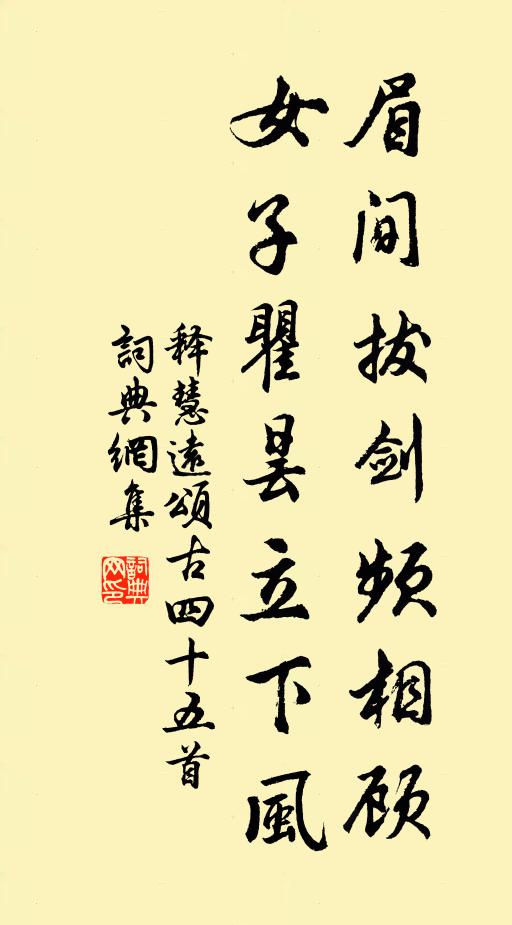 眉间拔剑频相顾
女子瞿昙立下風
释慧遠頌古四十五首
詞典網集
詞典網印